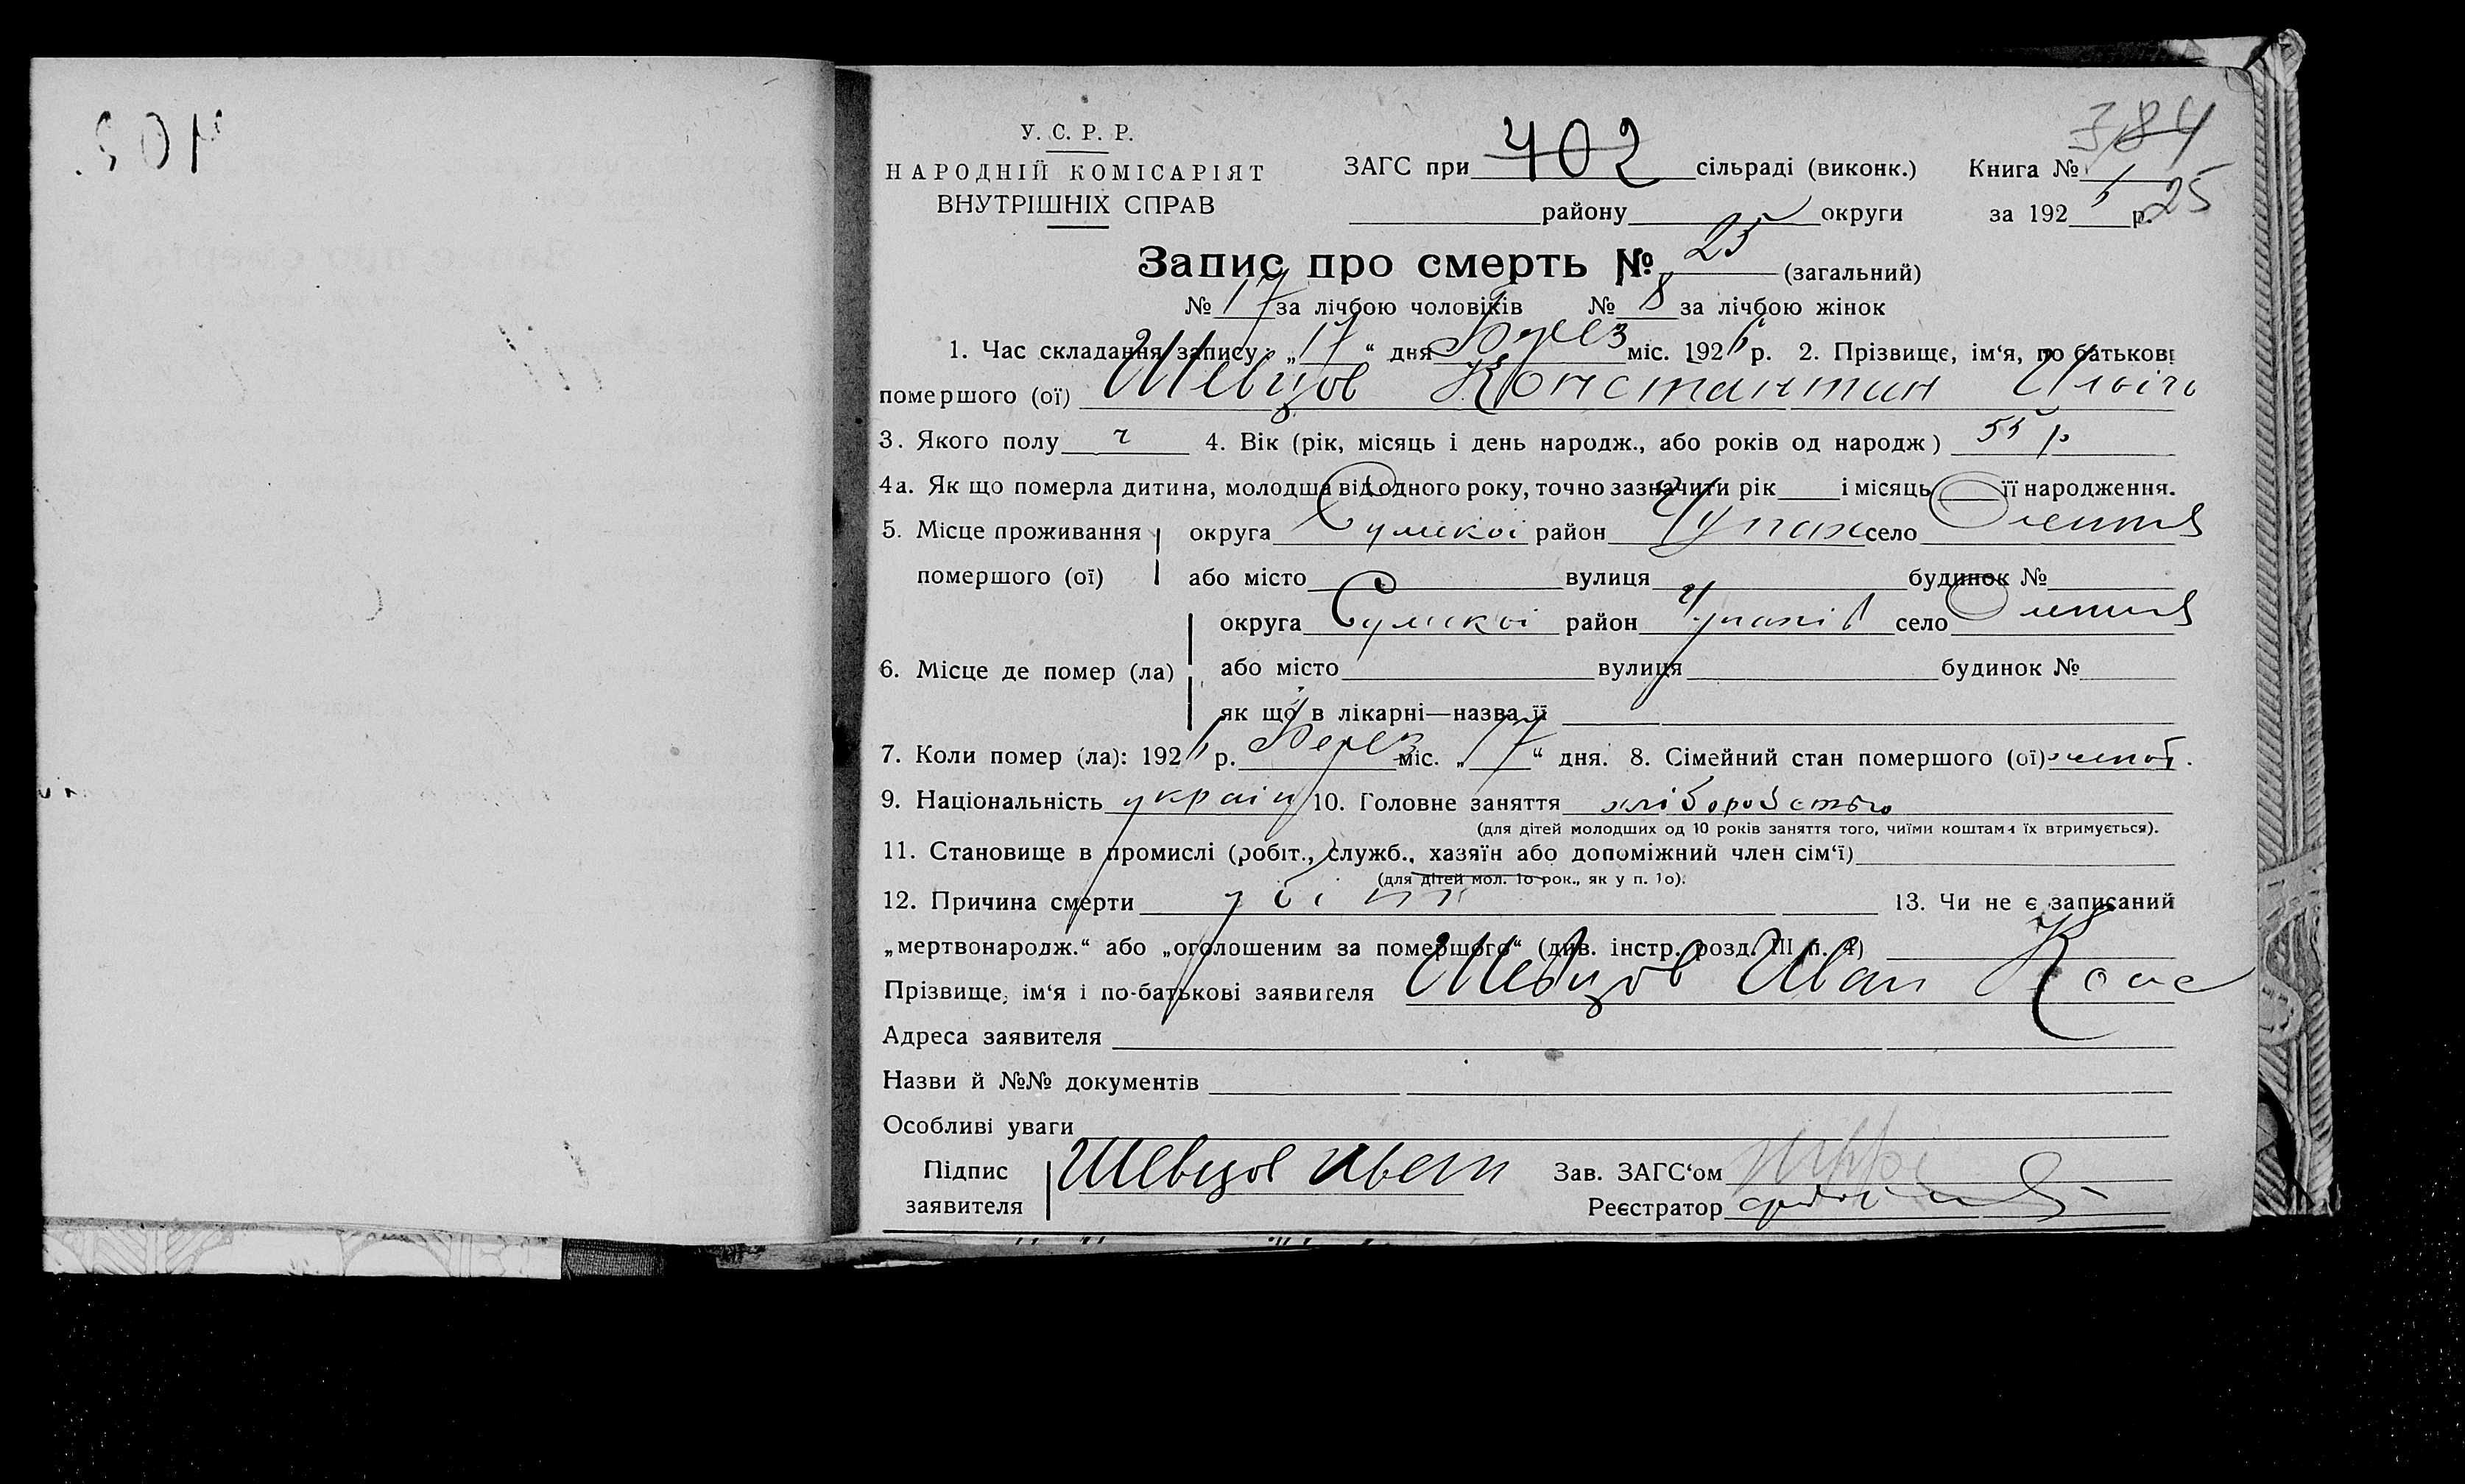 402
384
У. С. Р. Р.
НАРОДНІЙ КОМІСАРІЯТ
ВНУТРІШНІХ СПРАВ
ЗАГС при 402 сільраді (виконк.) Книга №
району округи за 192 р. 25
Запис про смерть № 25 (загальний)
№ 17 за лічбою чоловіків № 8 за лічбою жінок
1. Час складання запису: „17“ дня Берез міс. 1926 р. 2. Прізвище, ім‘я, по батькові
помершого (ої) Шевцов Константин Ильіч
3. Якого полу ч 4. Вік (рік, місяць і день народж., або років од народж) 55 р
4а. Як що померла дитина, молодша від одного року, точно зазначити рік і місяць її народження.
5. Місце проживання округа Сумскоі район село
помершого (ої) або місто вулиця будинок №
округа Сумскоі район село
6. Місце де помер (ла) або місто вулиця будинок №
як що в лікарні—назва її
7. Коли помер (ла): 1926 р. Берез міс. „17“ дня. 8. Сімейний стан помершого (ої)
9. Національність україн 10. Головне заняття хліборобство
(для дітей молодших од 10 років заняття того, чиїми коштами їх втримується).
11. Становище в промислі (робіт., служб., хазяїн або допоміжний член сім‘ї)
(для дітей мол. 1о рок., як у п. 1о).
12. Причина смерти 13. Чи не є записаний
„мертвонародж.“ або „оголошеним за помершого“ (див. інстр. розд. III п. 4)
Прізвище, ім‘я і по-батькові заявителя Шевцов Иван Конс
Адреса заявителя
Назви й №№ документів
Особливі уваги
Підпис заявителя Шевцов Иван
Зав. ЗАГС‘ом
Реєстратор